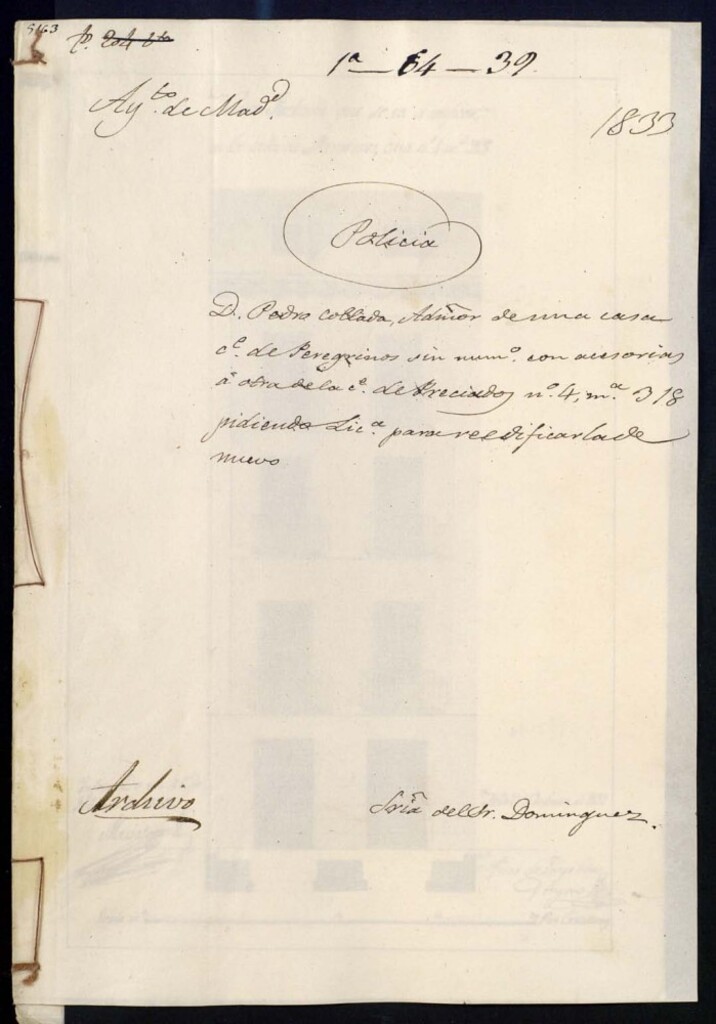 5163
1ª — 64 — 39.
Ayto. de Madd.
1833
Policia
D. Pedro Collada, Admor de una casa
ce. de Peregrinos sin numo. con acesorias
á otra de la ce. de Preciados no. 4, ma. 318
pidiendo Lica. para reedificarla de
nuevo
Archivo
Sria del Sr. Dominguez.